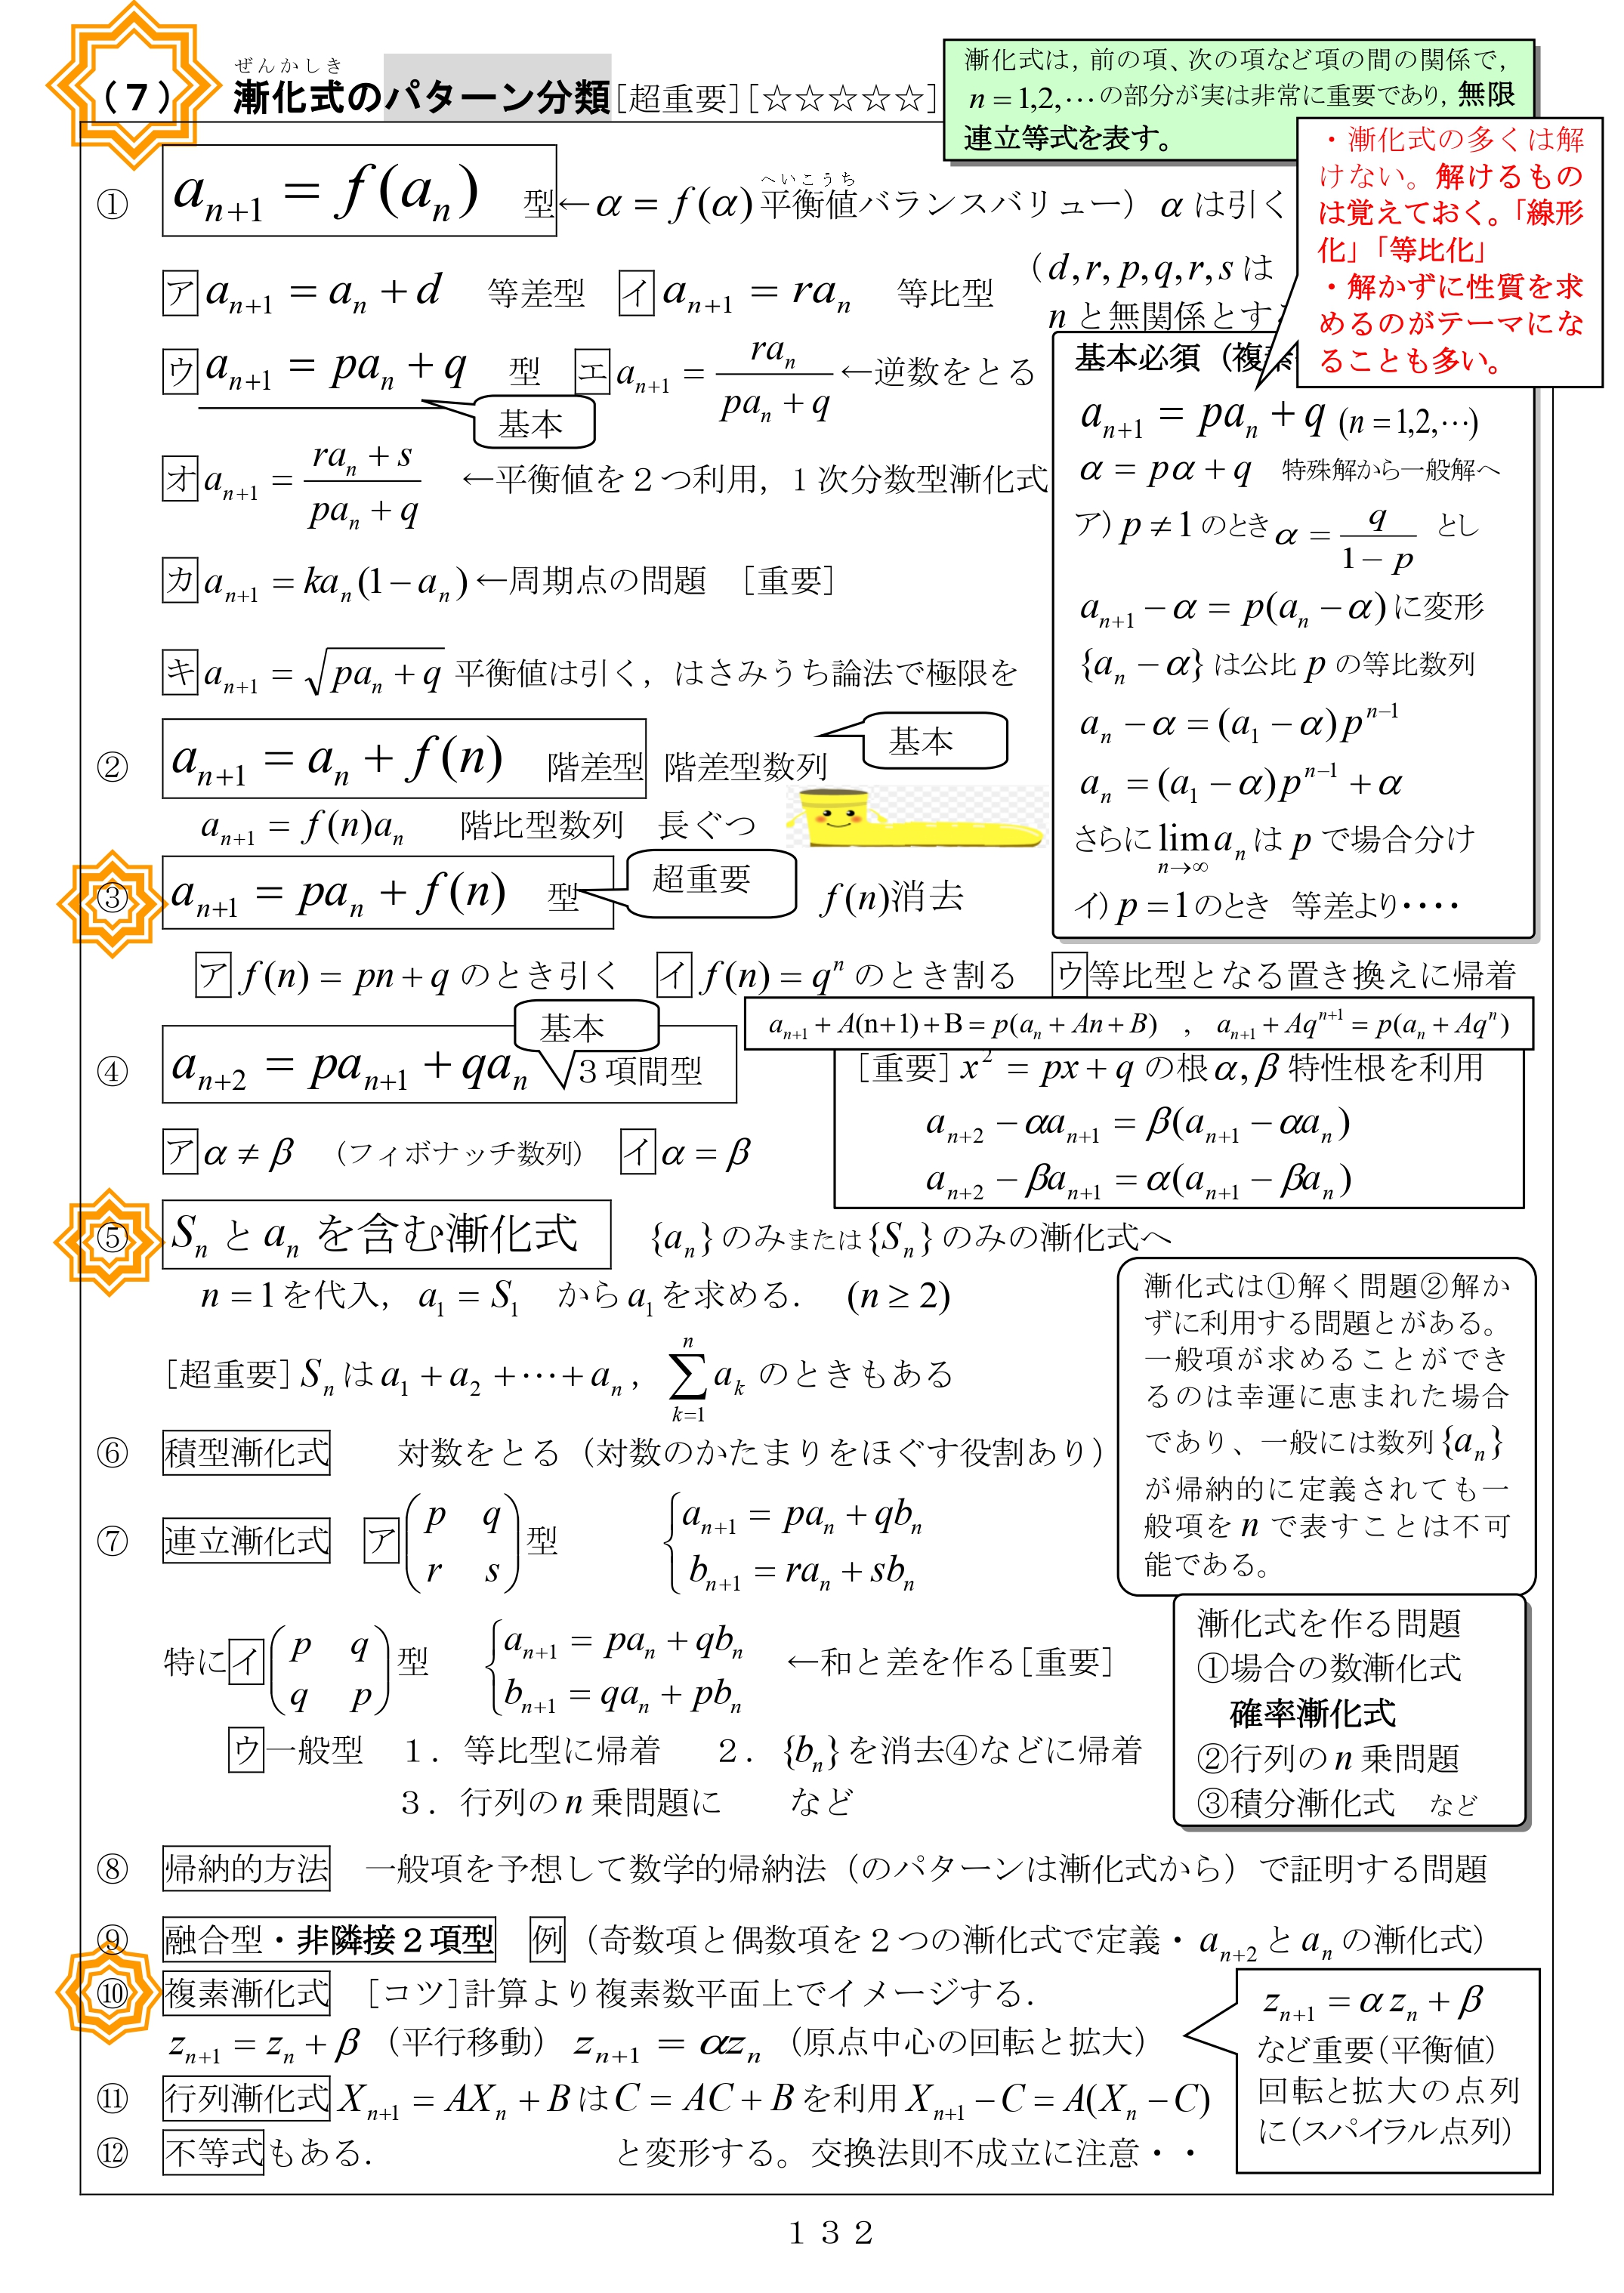 （７）
ぜんかしき
漸化式のパターン分類[超重要][☆☆☆☆☆]
漸化式は，前の項、次の項など項の間の関係で，
n = 1,2,⋯の部分が実は非常に重要であり，無限
連立等式を表す。
・漸化式の多くは解
けない。解けるもの
は覚えておく。「線形
化」「等比化」
・解かずに性質を求
めるのがテーマにな
ることも多い。
① a_{n+1} = f(a_n) 型←α = f(α) 平衡値バランスバリュー） α は引く
へいこうち
ア a_{n+1} = a_n + d 等差型 イ a_{n+1} = ra_n 等比型 （d,r,p,q,r,s は
n と無関係とす
ウ a_{n+1} = pa_n + q 型 エ a_{n+1} = \frac{ra_n}{pa_n + q} ←逆数をとる
基本
オ a_{n+1} = \frac{ra_n + s}{pa_n + q} ←平衡値を２つ利用，１次分数型漸化式
カ a_{n+1} = ka_n(1 − a_n) ←周期点の問題 ［重要］
キ a_{n+1} = \sqrt{pa_n + q} 平衡値は引く，はさみうち論法で極限を
基本必須（複
a_{n+1} = pa_n + q (n = 1,2,⋯)
α = pα + q 特殊解から一般解へ
ア) p ≠ 1 のとき α = \frac{q}{1 − p} とし
a_{n+1} − α = p(a_n − α) に変形
{a_n − α} は公比 p の等比数列
a_n − α = (a_1 − α)p^{n−1}
a_n = (a_1 − α)p^{n−1} + α
さらに \lim_{n→∞} a_n は p で場合分け
イ) p = 1 のとき 等差より・・・・
② a_{n+1} = a_n + f(n) 階差型 階差型数列
基本
a_{n+1} = f(n)a_n 階比型数列 長ぐつ
③ a_{n+1} = pa_n + f(n) 型 超重要 f(n)消去
ア f(n) = pn + q のとき引く イ f(n) = q^n のとき割る ウ等比型となる置き換えに帰着
a_{n+1} + A(n+1) + B = p(a_n + An + B) ， a_{n+1} + Aq^{n+1} = p(a_n + Aq^n)
基本
④ a_{n+2} = pa_{n+1} + qa_n ３項間型
［重要］x^2 = px + q の根 α, β 特性根を利用
a_{n+2} − αa_{n+1} = β(a_{n+1} − αa_n)
a_{n+2} − βa_{n+1} = α(a_{n+1} − βa_n)
ア α ≠ β （フィボナッチ数列） イ α = β
⑤ S_n と a_n を含む漸化式 {a_n} のみまたは{S_n} のみの漸化式へ
n = 1 を代入， a_1 = S_1 から a_1 を求める． (n ≥ 2)
［超重要］S_n は a_1 + a_2 + ⋯ + a_n ， \sum_{k=1}^{n} a_k のときもある
漸化式は①解く問題②解か
ずに利用する問題とがある。
一般項が求めることができ
るのは幸運に恵まれた場合
であり、一般には数列{a_n}
が帰納的に定義されても一
般項を n で表すことは不可
能である。
⑥ 積型漸化式 対数をとる（対数のかたまりをほぐす役割あり）
⑦ 連立漸化式 ア \begin{pmatrix} p & q \\ r & s \end{pmatrix} 型 \begin{cases} a_{n+1} = pa_n + qb_n \\ b_{n+1} = ra_n + sb_n \end{cases}
特にイ \begin{pmatrix} p & q \\ q & p \end{pmatrix} 型 \begin{cases} a_{n+1} = pa_n + qb_n \\ b_{n+1} = qa_n + pb_n \end{cases} ←和と差を作る［重要］
ウ一般型 １．等比型に帰着 ２．{b_n} を消去④などに帰着
３．行列の n 乗問題に など
漸化式を作る問題
①場合の数漸化式
確率漸化式
②行列の n 乗問題
③積分漸化式 など
⑧ 帰納的方法 一般項を予想して数学的帰納法（のパターンは漸化式から）で証明する問題
⑨ 融合型・非隣接２項型 例（奇数項と偶数項を２つの漸化式で定義・a_{n+2} と a_n の漸化式）
⑩ 複素漸化式 ［コツ］計算より複素数平面上でイメージする．
z_{n+1} = z_n + β （平行移動） z_{n+1} = αz_n （原点中心の回転と拡大）
z_{n+1} = αz_n + β
など重要（平衡値）
回転と拡大の点列
に（スパイラル点列）
⑪ 行列漸化式 X_{n+1} = AX_n + B は C = AC + B を利用 X_{n+1} − C = A(X_n − C)
⑫ 不等式もある． と変形する。交換法則不成立に注意・・
１３２